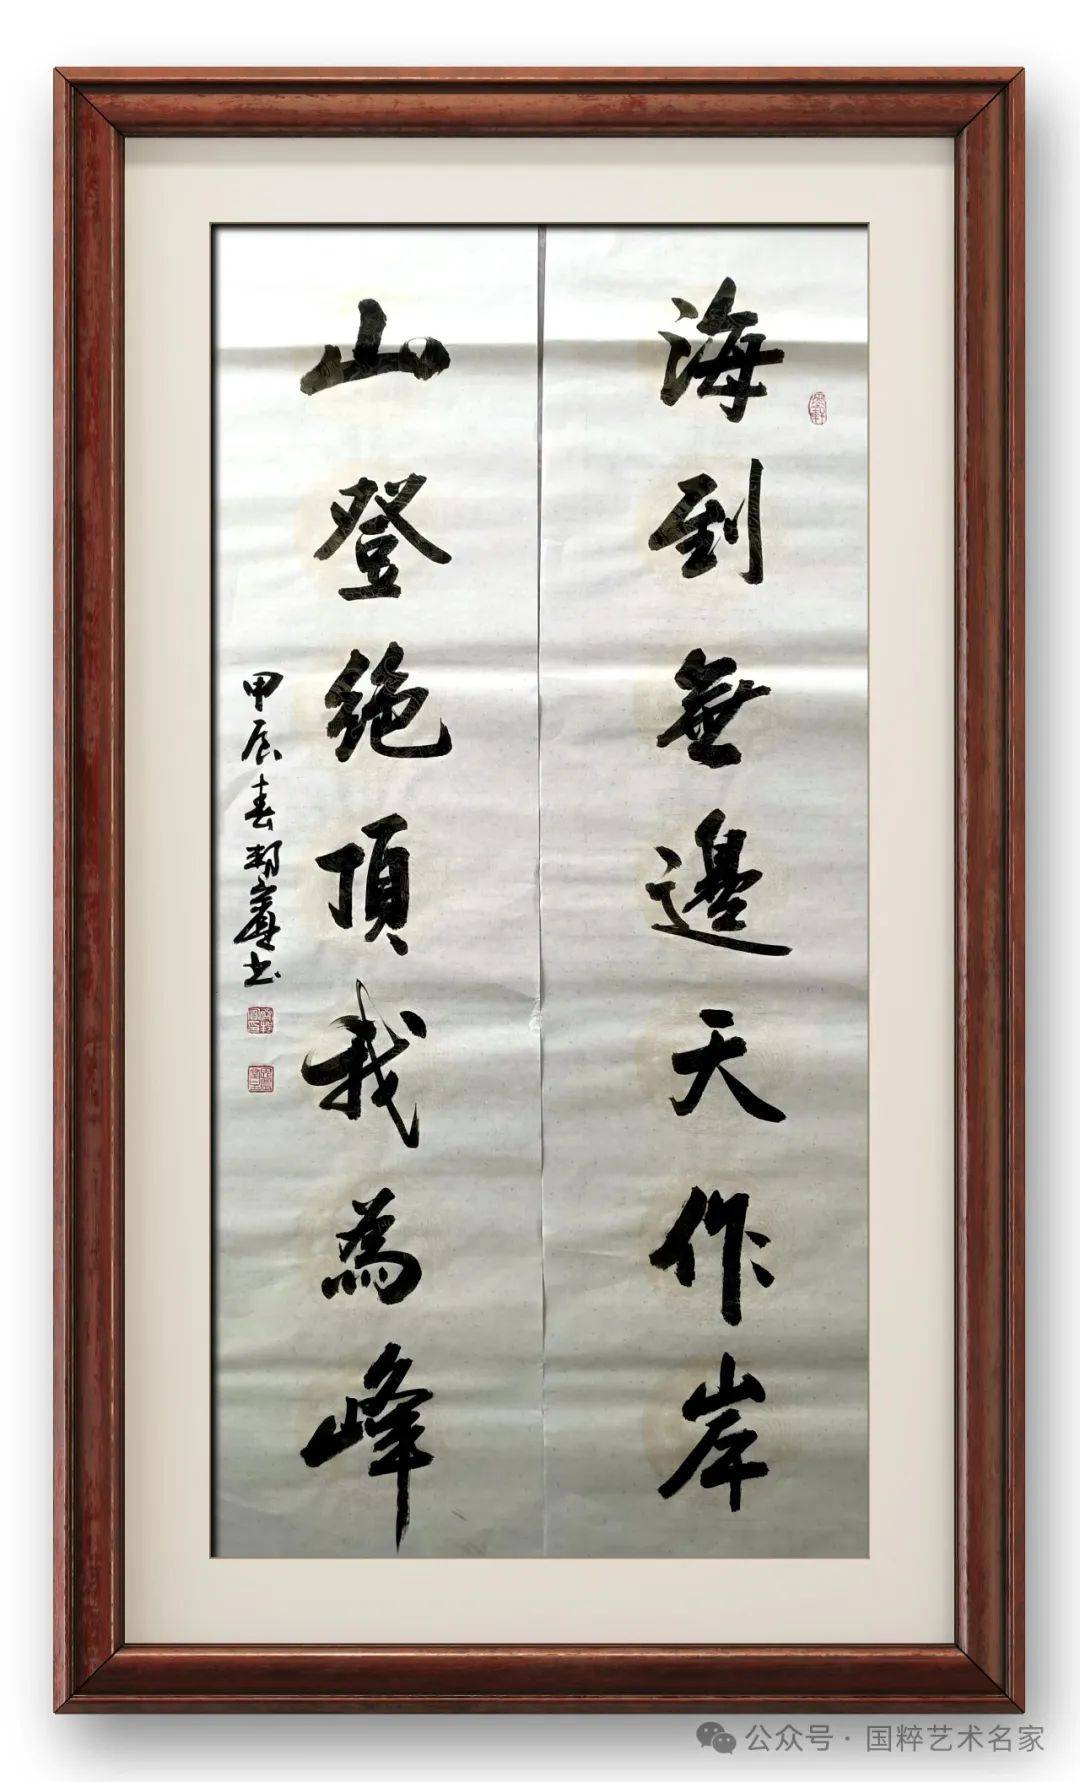 海到無邊天作岸
山登絶頂我為峰
甲辰春
書
公众号·国粹艺术名家